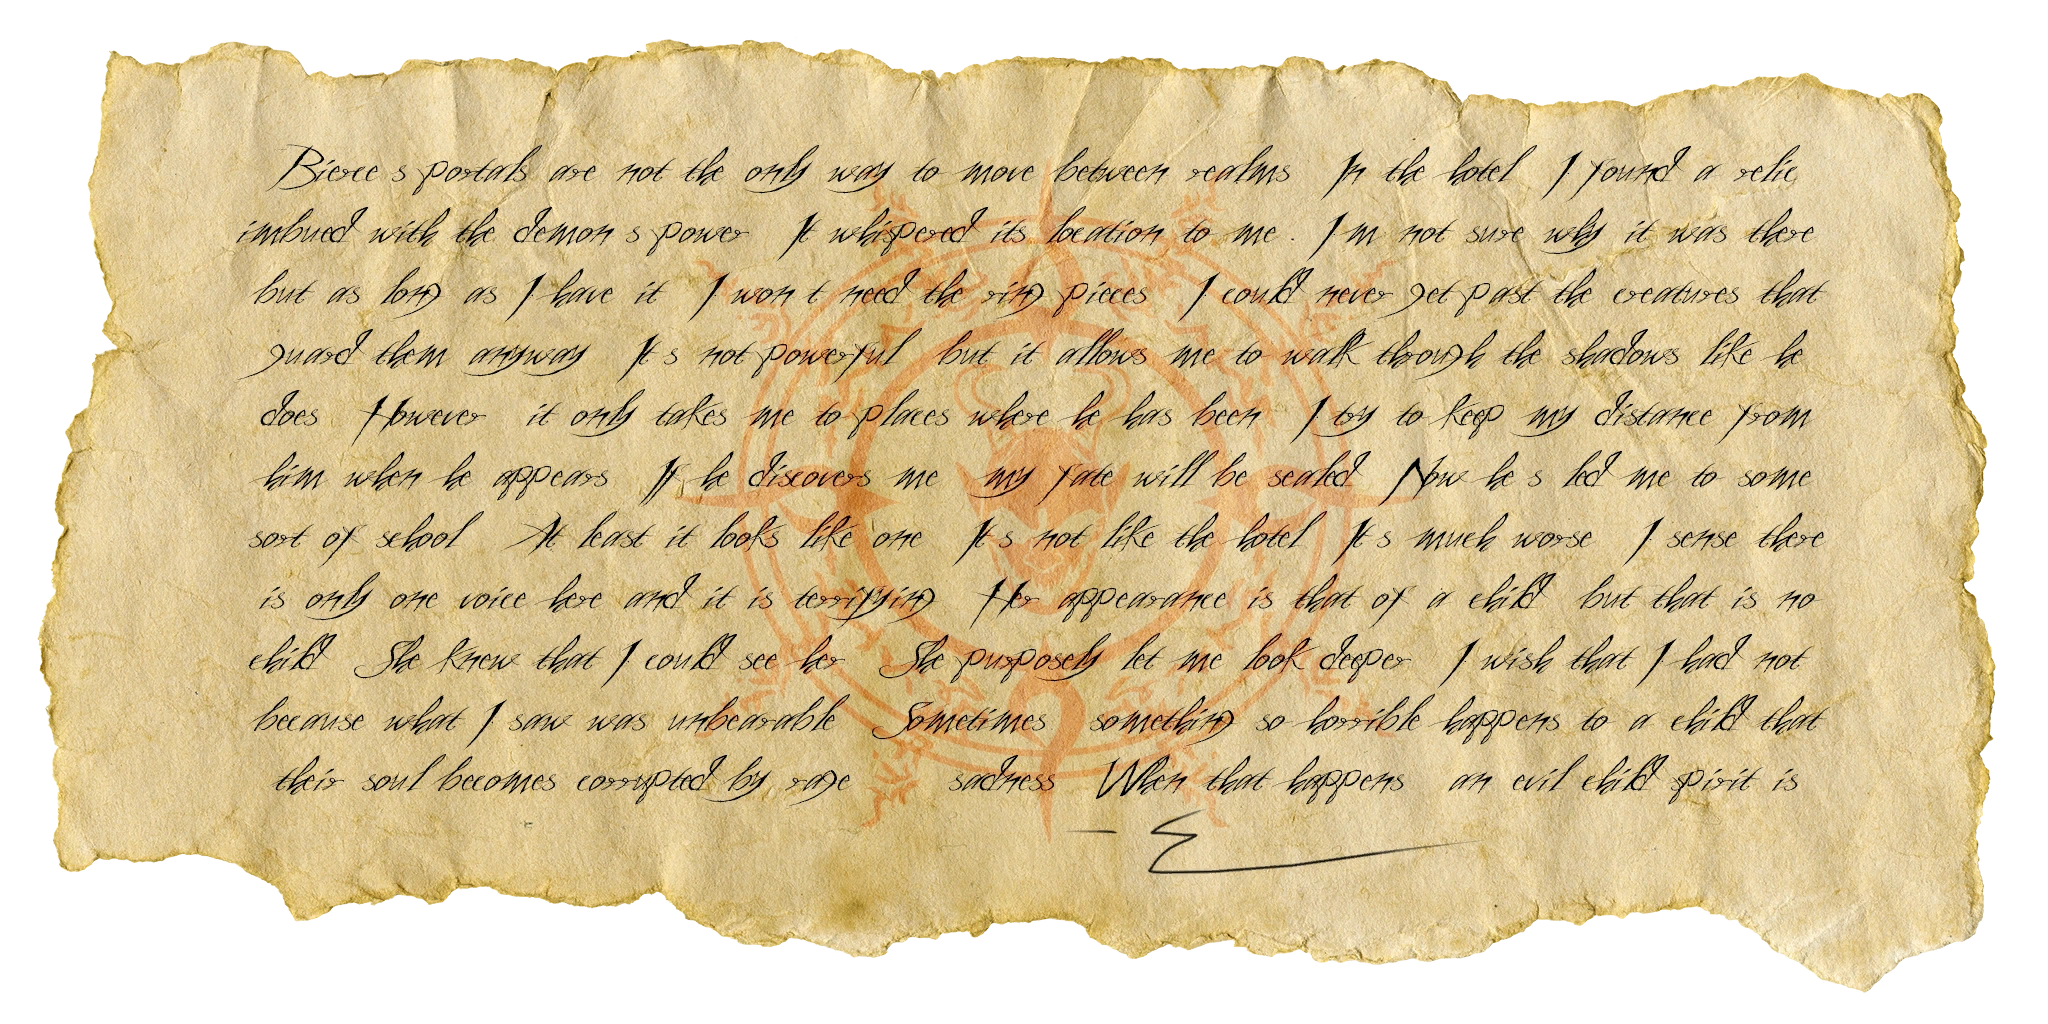 Bierce s portals are not the only way to move between realms In the hotel I found a relic
imbued with the demon s power It whispered its location to me . I m not sure why it was there
but as long as I have it I won t need the ring pieces I could never get past the creatures that
guard them anyway It s not powerful but it allows me to walk through the shadows like he
does However it only takes me to places where he has been I try to keep my distance from
him when he appears If he discovers me my fate will be sealed Now he s led me to some
sort of school At least it looks like one It s not like the hotel It s much worse I sense there
is only one voice here and it is terrifying Her appearance is that of a child but that is no
child She knew that I could see her She purposely let me look deeper I wish that I had not
because what I saw was unbearable Sometimes something so horrible happens to a child that
their soul becomes corrupted by rage sadness When that happens an evil child spirit is
- E